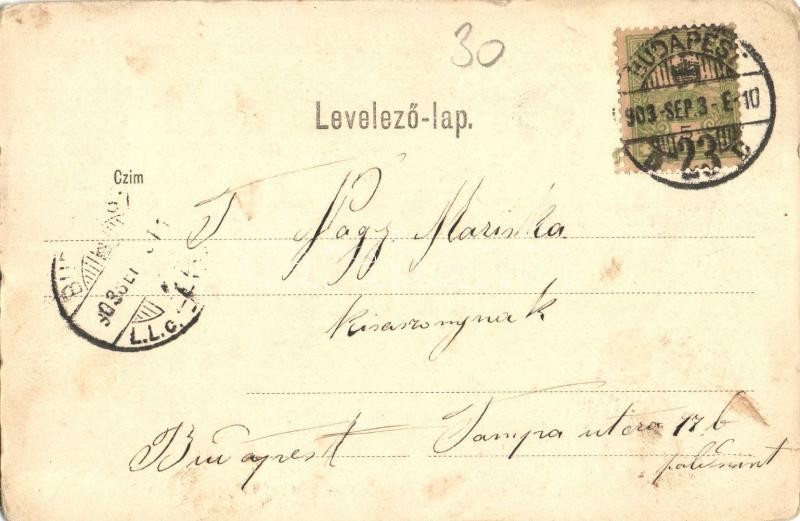 30
BUDAPEST
903-SEP.3-E-10
5
23
Levelező-lap.
Czim
T Nagy Mariska
BUD
903 SEP
L.L.c.
kisaszonynak
Budapest Tompa utcza 17 b